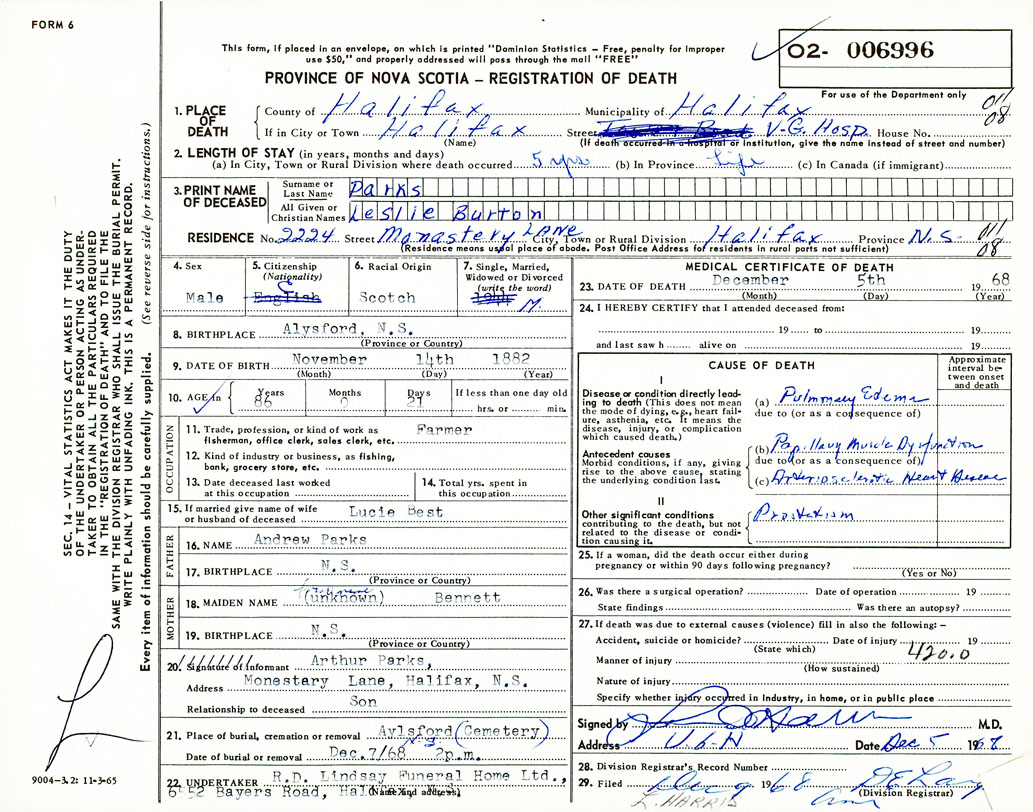 FORM 6
This form, if placed in an envelope, on which is printed "Dominion Statistics – Free, penalty for improper
use $50," and properly addressed will pass through the mail "FREE"
O2- 006996
PROVINCE OF NOVA SCOTIA – REGISTRATION OF DEATH
For use of the Department only
1. PLACE OF DEATH County of Halifax Municipality of Halifax 011 08
If in City or Town Halifax Street V-G. Hosp. House No.
(Name) (If death occurred in a hospital or institution, give the name instead of street and number)
2. LENGTH OF STAY (in years, months and days)
(a) In City, Town or Rural Division where death occurred 5 yrs (b) In Province life (c) In Canada (if immigrant)
3. PRINT NAME OF DECEASED Surname or Last Name Parks
All Given or Christian Names Leslie Burton
RESIDENCE No. 2224 Street Monastery LANE City, Town or Rural Division Halifax Province N.S. 011 08
(Residence means usual place of abode. Post Office Address for residents in rural parts not sufficient)
4. Sex Male
5. Citizenship (Nationality) English C
6. Racial Origin Scotch
7. Single, Married, Widowed or Divorced (write the word) M.
8. BIRTHPLACE Alysford, N.S.
(Province or Country)
9. DATE OF BIRTH November 14th 1882
(Month) (Day) (Year)
10. AGE in Years 86 Months 0 Days 21 If less than one day old hrs. or min.
OCCUPATION
11. Trade, profession, or kind of work as fisherman, office clerk, sales clerk, etc. Farmer
12. Kind of industry or business, as fishing, bank, grocery store, etc.
13. Date deceased last worked at this occupation
14. Total yrs. spent in this occupation
15. If married give name of wife or husband of deceased Lucie Best
FATHER
16. NAME Andrew Parks
17. BIRTHPLACE N.S.
(Province or Country)
MOTHER
18. MAIDEN NAME (unknown) Bennett
19. BIRTHPLACE N.S.
(Province or Country)
20. Signature of informant Arthur Parks,
Address Monestary Lane, Halifax, N.S.
Relationship to deceased Son
21. Place of burial, cremation or removal Aylsford (Cemetery)
N.S.
Date of burial or removal Dec. 7/68 2p.m.
22. UNDERTAKER R.D. Lindsay Funeral Home Ltd.,
6552 Bayers Road, Halifax,
(Name and address)
MEDICAL CERTIFICATE OF DEATH
23. DATE OF DEATH December 5th 1968
(Month) (Day) (Year)
24. I HEREBY CERTIFY that I attended deceased from:
19 to 19
and last saw h alive on 19
CAUSE OF DEATH
Approximate interval between onset and death
I
Disease or condition directly leading to death (This does not mean the mode of dying, e.g., heart failure, asthenia, etc. It means the disease, injury, or complication which caused death.)
(a) Pulmonary Edema
due to (or as a consequence of)
Antecedent causes
Morbid conditions, if any, giving rise to the above cause, stating the underlying condition last.
(b) Papillary Muscle Dysfunction
due to (or as a consequence of)
(c) Arteriosclerotic Heart Disease
II
Other significant conditions contributing to the death, but not related to the disease or condition causing it.
Prostatism
25. If a woman, did the death occur either during pregnancy or within 90 days following pregnancy?
(Yes or No)
26. Was there a surgical operation? Date of operation 19
State findings Was there an autopsy?
27. If death was due to external causes (violence) fill in also the following: –
Accident, suicide or homicide? Date of injury 19
(State which) 420.0
Manner of injury
(How sustained)
Nature of injury
Specify whether injury occurred in industry, in home, or in public place
Signed by M.D.
Address V.G.H Date Dec 5 1968
28. Division Registrar's Record Number
29. Filed Dec 9 1968
(Division Registrar)
L. HARRIS
9004-3.2: 11-3-65
SEC. 14 – VITAL STATISTICS ACT MAKES IT THE DUTY
OF THE UNDERTAKER OR PERSON ACTING AS UNDER-
TAKER TO OBTAIN ALL THE PARTICULARS REQUIRED
IN THE "REGISTRATION OF DEATH" AND TO FILE THE
SAME WITH THE DIVISION REGISTRAR WHO SHALL ISSUE THE BURIAL PERMIT.
WRITE PLAINLY WITH UNFADING INK. THIS IS A PERMANENT RECORD.
Every item of information should be carefully supplied. (See reverse side for instructions.)